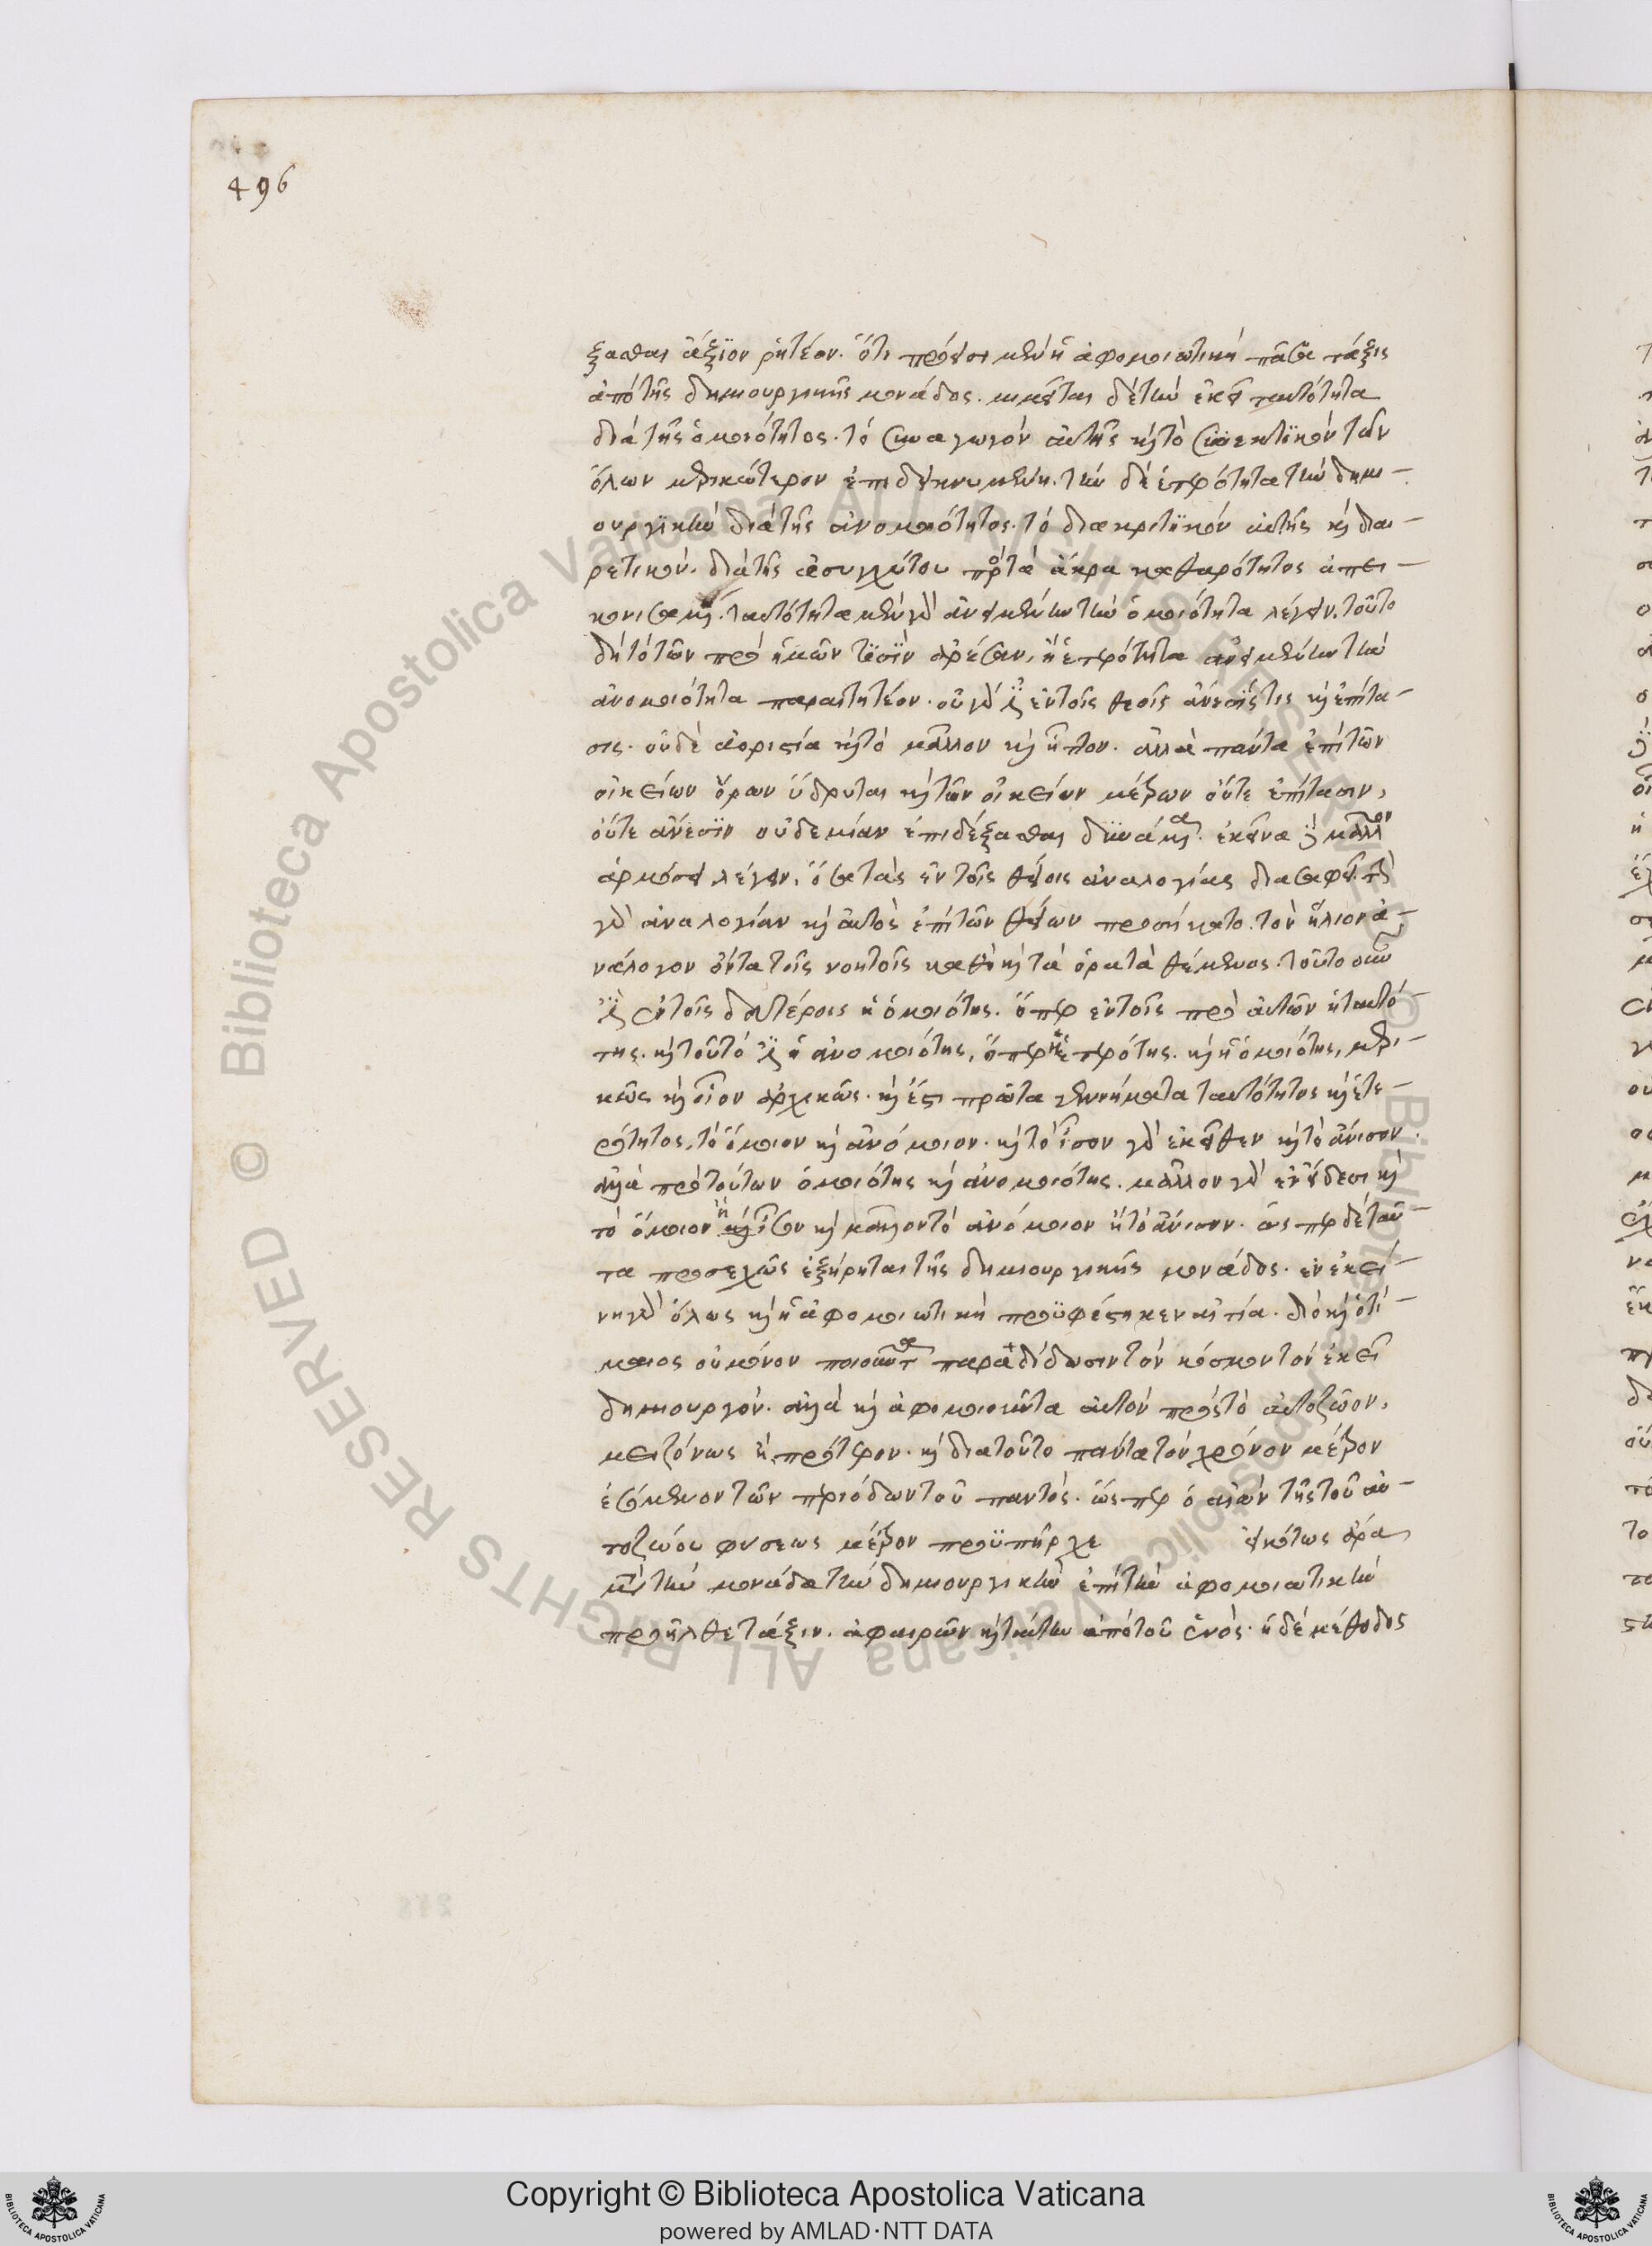 496
ξασθαι ἄξιον ῥητέον. ὅτι πρόεισι μὲν ἡ ἀφομοιωτικὴ πᾶσα τάξις
ἀπὸ τῆς δημιουργικῆς μονάδος. μιμεῖται δὲ τὴν ἐκεῖ ταυτότητα
διὰ τῆς ὁμοιότητος. τὸ συναγωγὸν αὐτῆς καὶ τὸ συνεκτικὸν τῶν
ὅλων μερικώτερον ἐπιδεικνυμένη. τὴν δὲ ἑτερότητα τὴν δημι-
ουργικὴν διὰ τῆς ἀνομοιότητος. τὸ διακριτικὸν αὐτῆς καὶ διαι-
ρετικὸν. διὰ τῆς ἀσυγχύτου πρὸς τὰ ἄκρα καθαρότητος ἀπει-
κονισαμένη. ταυτότητα μὲν γὰρ ἀνειμένην τὴν ὁμοιότητα λέγειν. τοῦτο
δὴ τὸ τῶν πρὸ ἡμῶν τισὶν ἀρέσαν. ἢ ἑτερότητα ἀνειμένην τὴν
ἀνομοιότητα παραιτητέον. οὐ γάρ ἐστιν ἐν τοῖς θεοῖς ἄνεσίς τις καὶ ἐπίτα-
σις. οὐδὲ ἀοριστία καὶ τὸ μᾶλλον καὶ ἧττον. ἀλλὰ πάντα ἐπὶ τῶν
οἰκείων ὅρων ἵδρυται καὶ τῶν οἰκείων μέτρων οὔτε ἐπίτασιν,
οὔτε ἄνεσιν οὐδεμίαν ἐπιδέξασθαι δυνάμενα. ἐκεῖνα δὲ μᾶλλον
ἁρμόσει λέγειν, ὅσα τὰς ἐν τοῖς θείοις ἀναλογίας διασαφεῖ. τὴν
γὰρ ἀναλογίαν καὶ αὐτὸς ἐπὶ τῶν θείων προσήκατο. τὸν ἥλιον ἀ-
νάλογον ὄντα τοῖς νοητοῖς καθὸ καὶ τὰ ὁρατὰ θέμενος. τοῦτο οὖν
ἐστὶν ἐν τοῖς δευτέροις ἡ ὁμοιότης. ὅπερ ἐν τοῖς πρὸ αὐτῶν ἡ ταυτό-
της. καὶ τοῦτό ἐστιν ἡ ἀνομοιότης, ὅπερ ἡ ἑτερότης. καὶ ἡ ὁμοιότης, μερι-
κῶς καὶ οἷον ἀρχικῶς. καὶ ἔστι πρῶτα γεννήματα ταυτότητος καὶ ἑτε-
ρότητος, τὸ ὅμοιον καὶ ἀνόμοιον. καὶ τὸ ἴσον γὰρ ἐκεῖθεν καὶ τὸ ἄνισον.
ἀλλὰ πρὸ τούτων ὁμοιότης καὶ ἀνομοιότης. μᾶλλον γὰρ ἐν εἴδεσι καὶ
τὸ ὅμοιον ἢ καὶ ἴσον καὶ μᾶλλον τὸ ἀνόμοιον ἢ τὸ ἄνισον. ὥσπερ δὲ ταῦ-
τα προσεχῶς ἐξήρηται τῆς δημιουργικῆς μονάδος. ἐν ἐκεί-
νῃ γὰρ ὅλως καὶ ἡ ἀφομοιωτικὴ προϋφέστηκεν αἰτία. διὸ καὶ ὁ τί-
μαιος οὐ μόνον ποιοῦντα παραδίδωσιν τὸν κόσμον τὸν ἐκεῖ
δημιουργόν. ἀλλὰ καὶ ἀφομοιοῦντα αὐτὸν πρὸς τὸ αὐτοζῶον,
μειζόνως ἢ πρότερον. καὶ διὰ τοῦτο πάντα τὸν χρόνον μέτρον
ἐσόμενον τῶν περιόδων τοῦ παντός. ὥσπερ ὁ αἰὼν τῆς τοῦ αὐ-
τοζώου φύσεως μέτρον προϋπῆρχε εἰκότως ἄρα
μετὰ τὴν μονάδα τὴν δημιουργικὴν ἐπὶ τὴν ἀφομοιωτικὴν
προῆλθε τάξιν. ἀφαιρῶν καὶ ταύτην ἀπὸ τοῦ ἑνός. ἡ δὲ μέθοδος